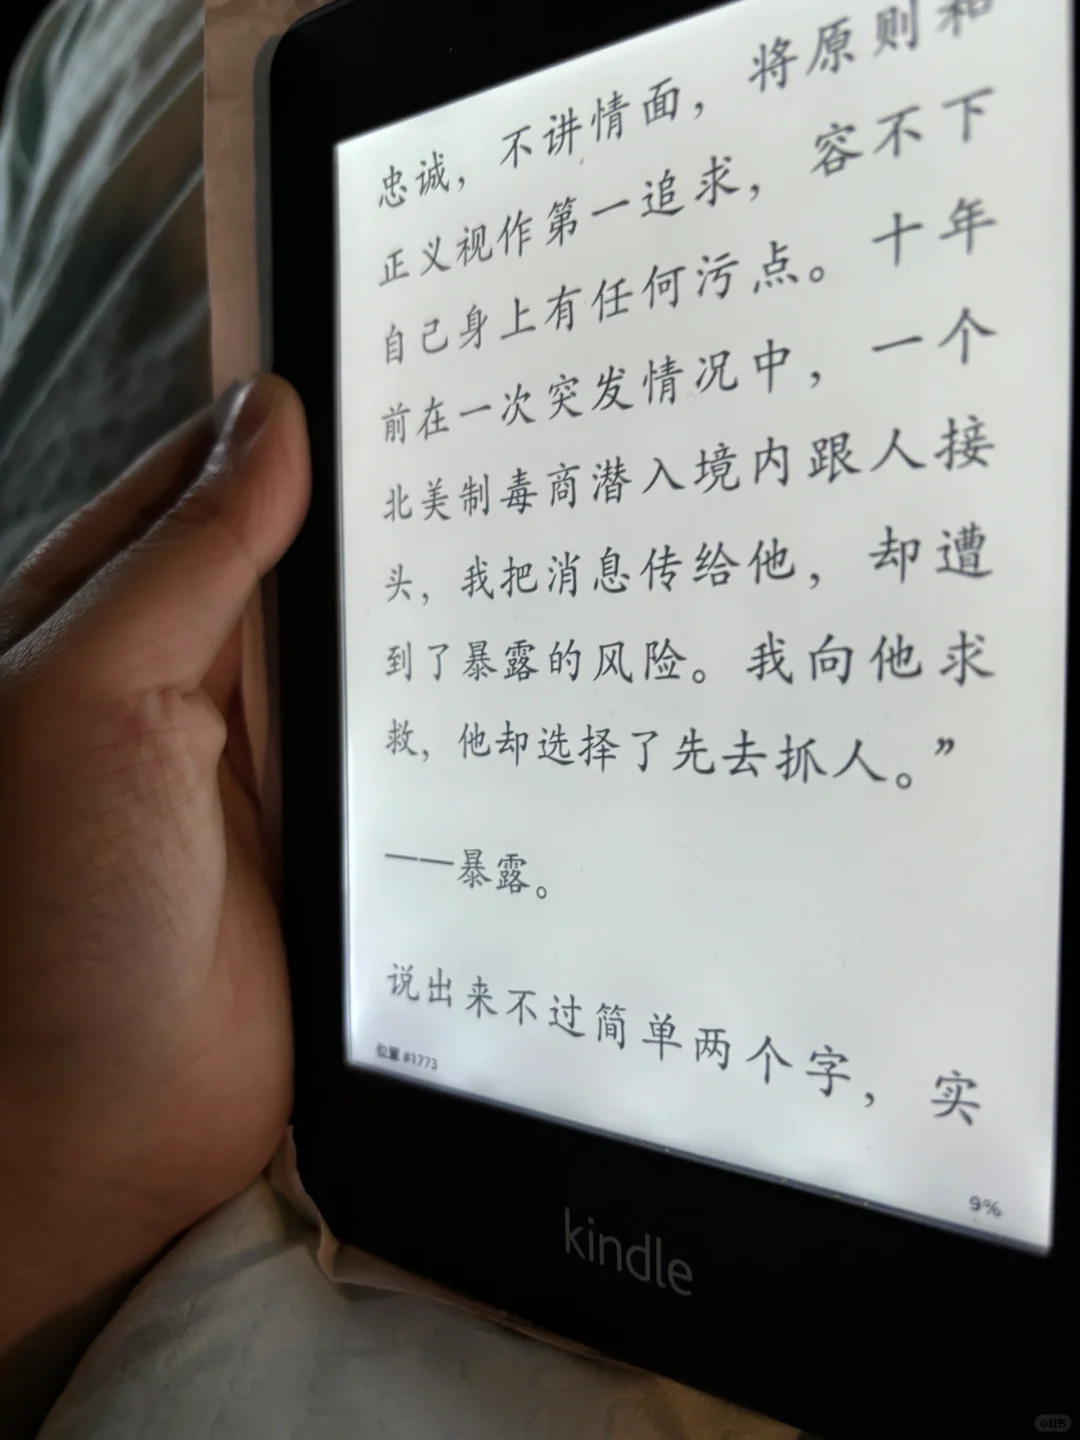 忠诚，不讲情面，将原则和
正义视作第一追求，容不下
自己身上有任何污点。十年
前在一次突发情况中，一个
北美制毒商潜入境内跟人接
头，我把消息传给他，却遭
到了暴露的风险。我向他求
救，他却选择了先去抓人。”
——暴露。
说出来不过简单两个字，实
位置 #1773
9%
kindle
小红书